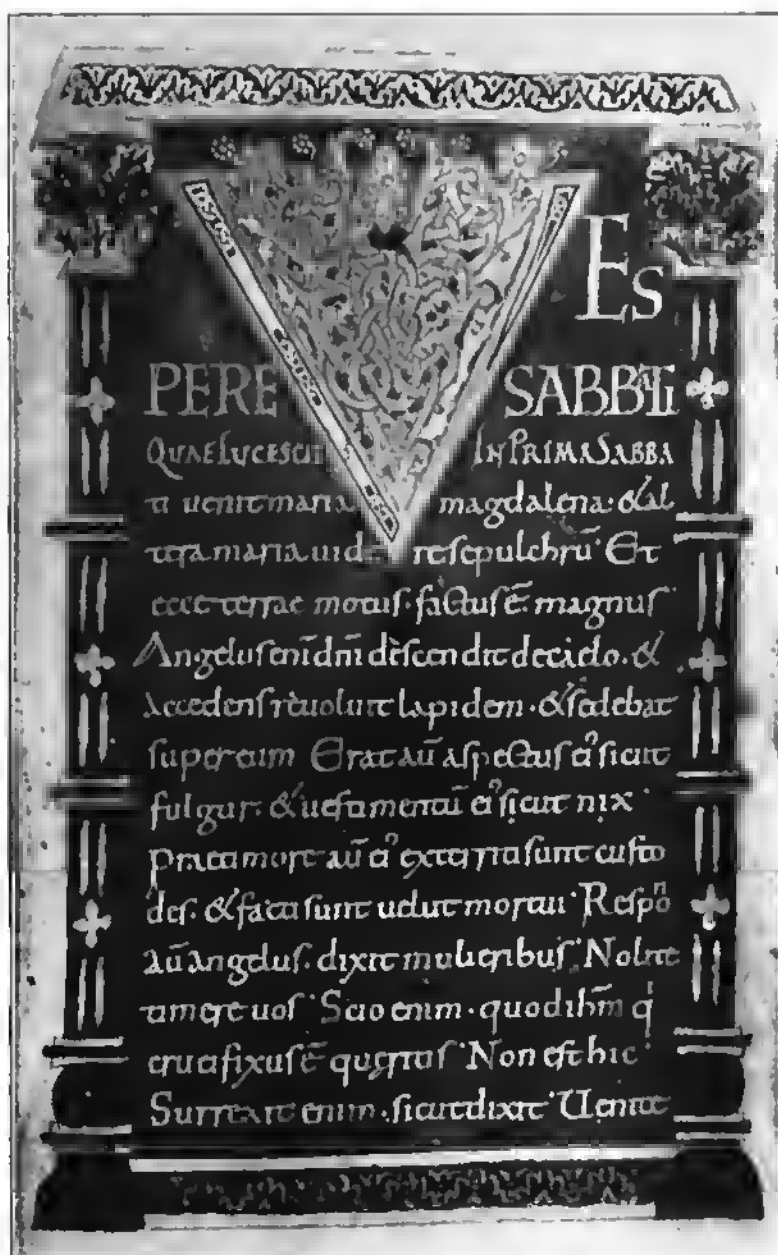 VES
PERE SABBATI
QUAE LUCESCIT IN PRIMA SABBA
ti uenit maria magdalena. & al
tera maria uidere sepulchrū. Et
ecce terrae motus. factus ē magnus
Angelus eni̅ dn̅i descendit de caelo. &
Accedens reuoluit lapidem. & sedebat
super eum Erat au̅ aspectus ei᾿ sicut
fulgur. & uestimentū ei᾿ sicut nix
Prae timore au̅ ei᾿ exterriti sunt custo
des. & facti sunt uelut mortui. Respō
au̅ angelus. dixit mulieribus. Nolite
timere uos. Scio enim. quod ihm̅ q
crucifixus ē queritis. Non est hic.
Surrexit enim. sicut dixit. Uenite